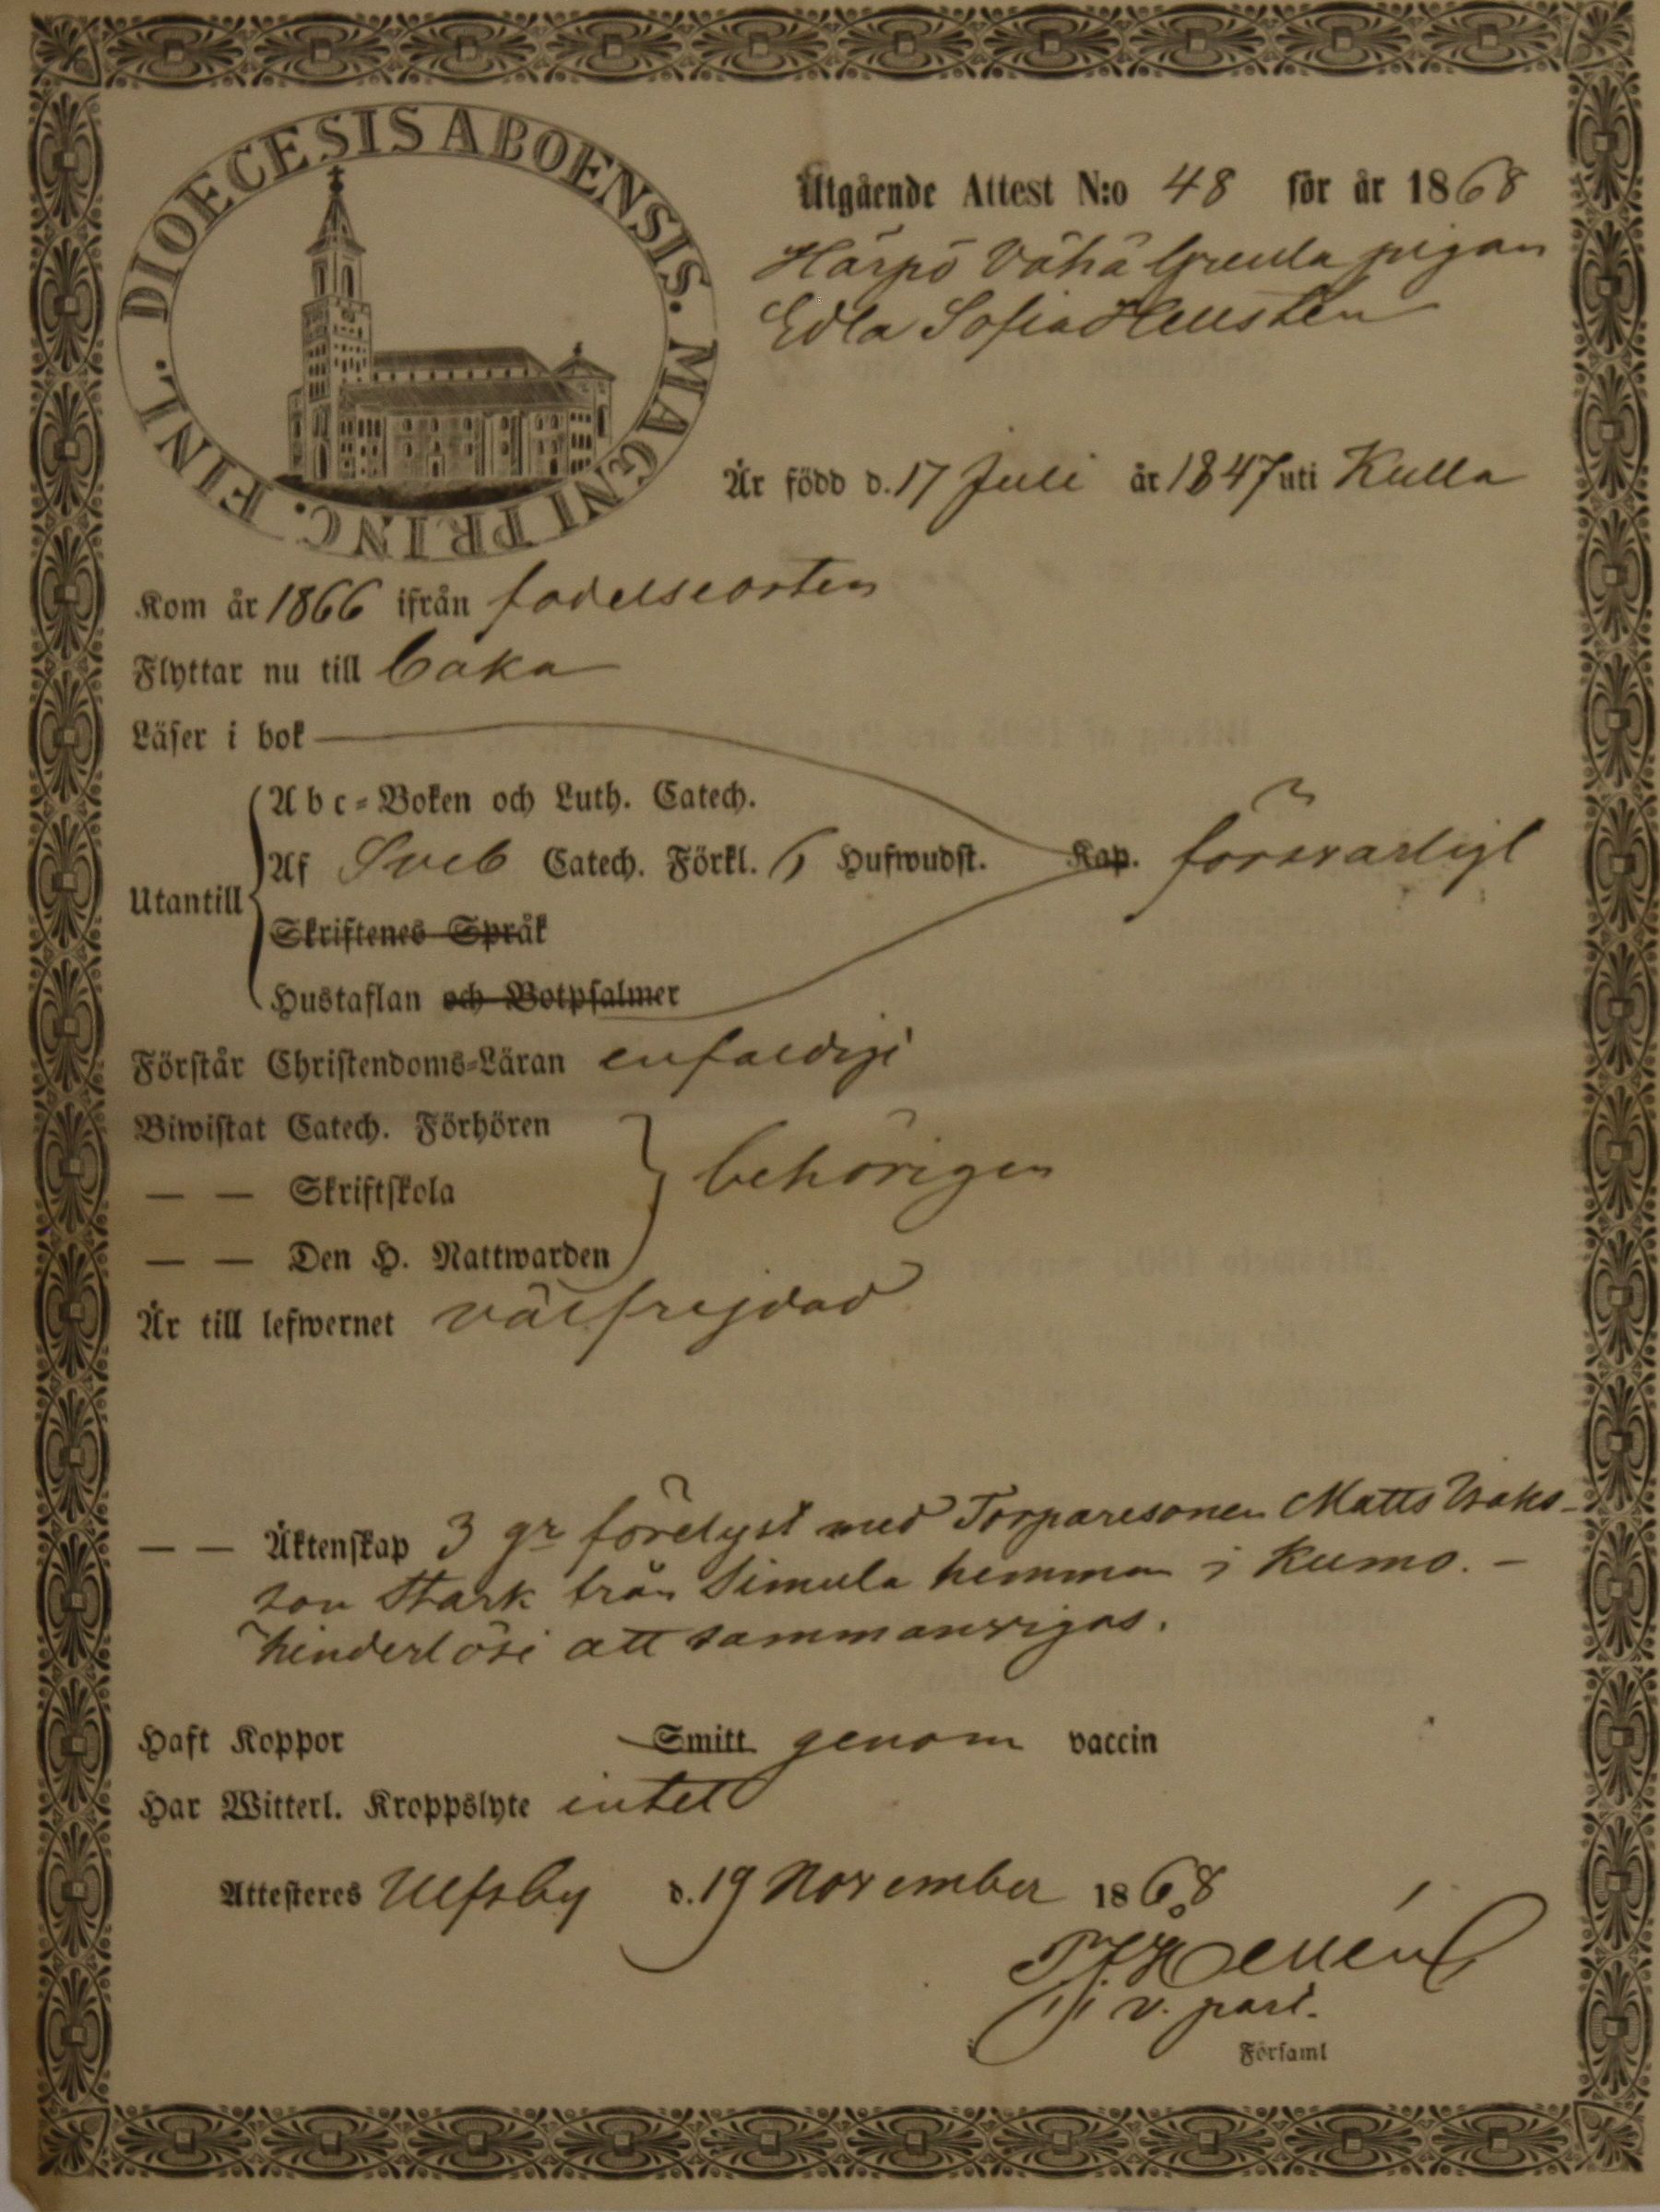 DIOECESIS ABOENSIS. MAGNI PRINC. FINL.
Utgående Attest N:o 48 för år 1868
Härpö Vähä Greula pigan
Edla Sofia Hellsten
Är född d. 17 Juli år 1847 uti Kulla
Kom år 1866 ifrån födelseorten
Flyttar nu till
Läser i bok
Abc-Boken och Luth. Catech.
Utantill Af Sveb Catech. Förkl. 6 Hufwudst. Kap. försvarligt
Skriftenes Språk
Hustaflan och Botpsalmer
Förstår Christendoms-Läran enfaldigt
Biwistat Catech. Förhören
— — Skriftskola behörigen
— — Den H. Nattwarden
Är till lefwernet välfrejdad
— — Äktenskap 3 gr förelyst med Torparesonen Matts Isaks-
son Stark från Simula hemman i Kumo. —
hinderlöst att sammanvigas.
Haft Koppor Smitt genom vaccin
Har Witterl. Kroppslyte intet
Attesteres Ulfsby d. 19 November 1868
v. past.
Församl